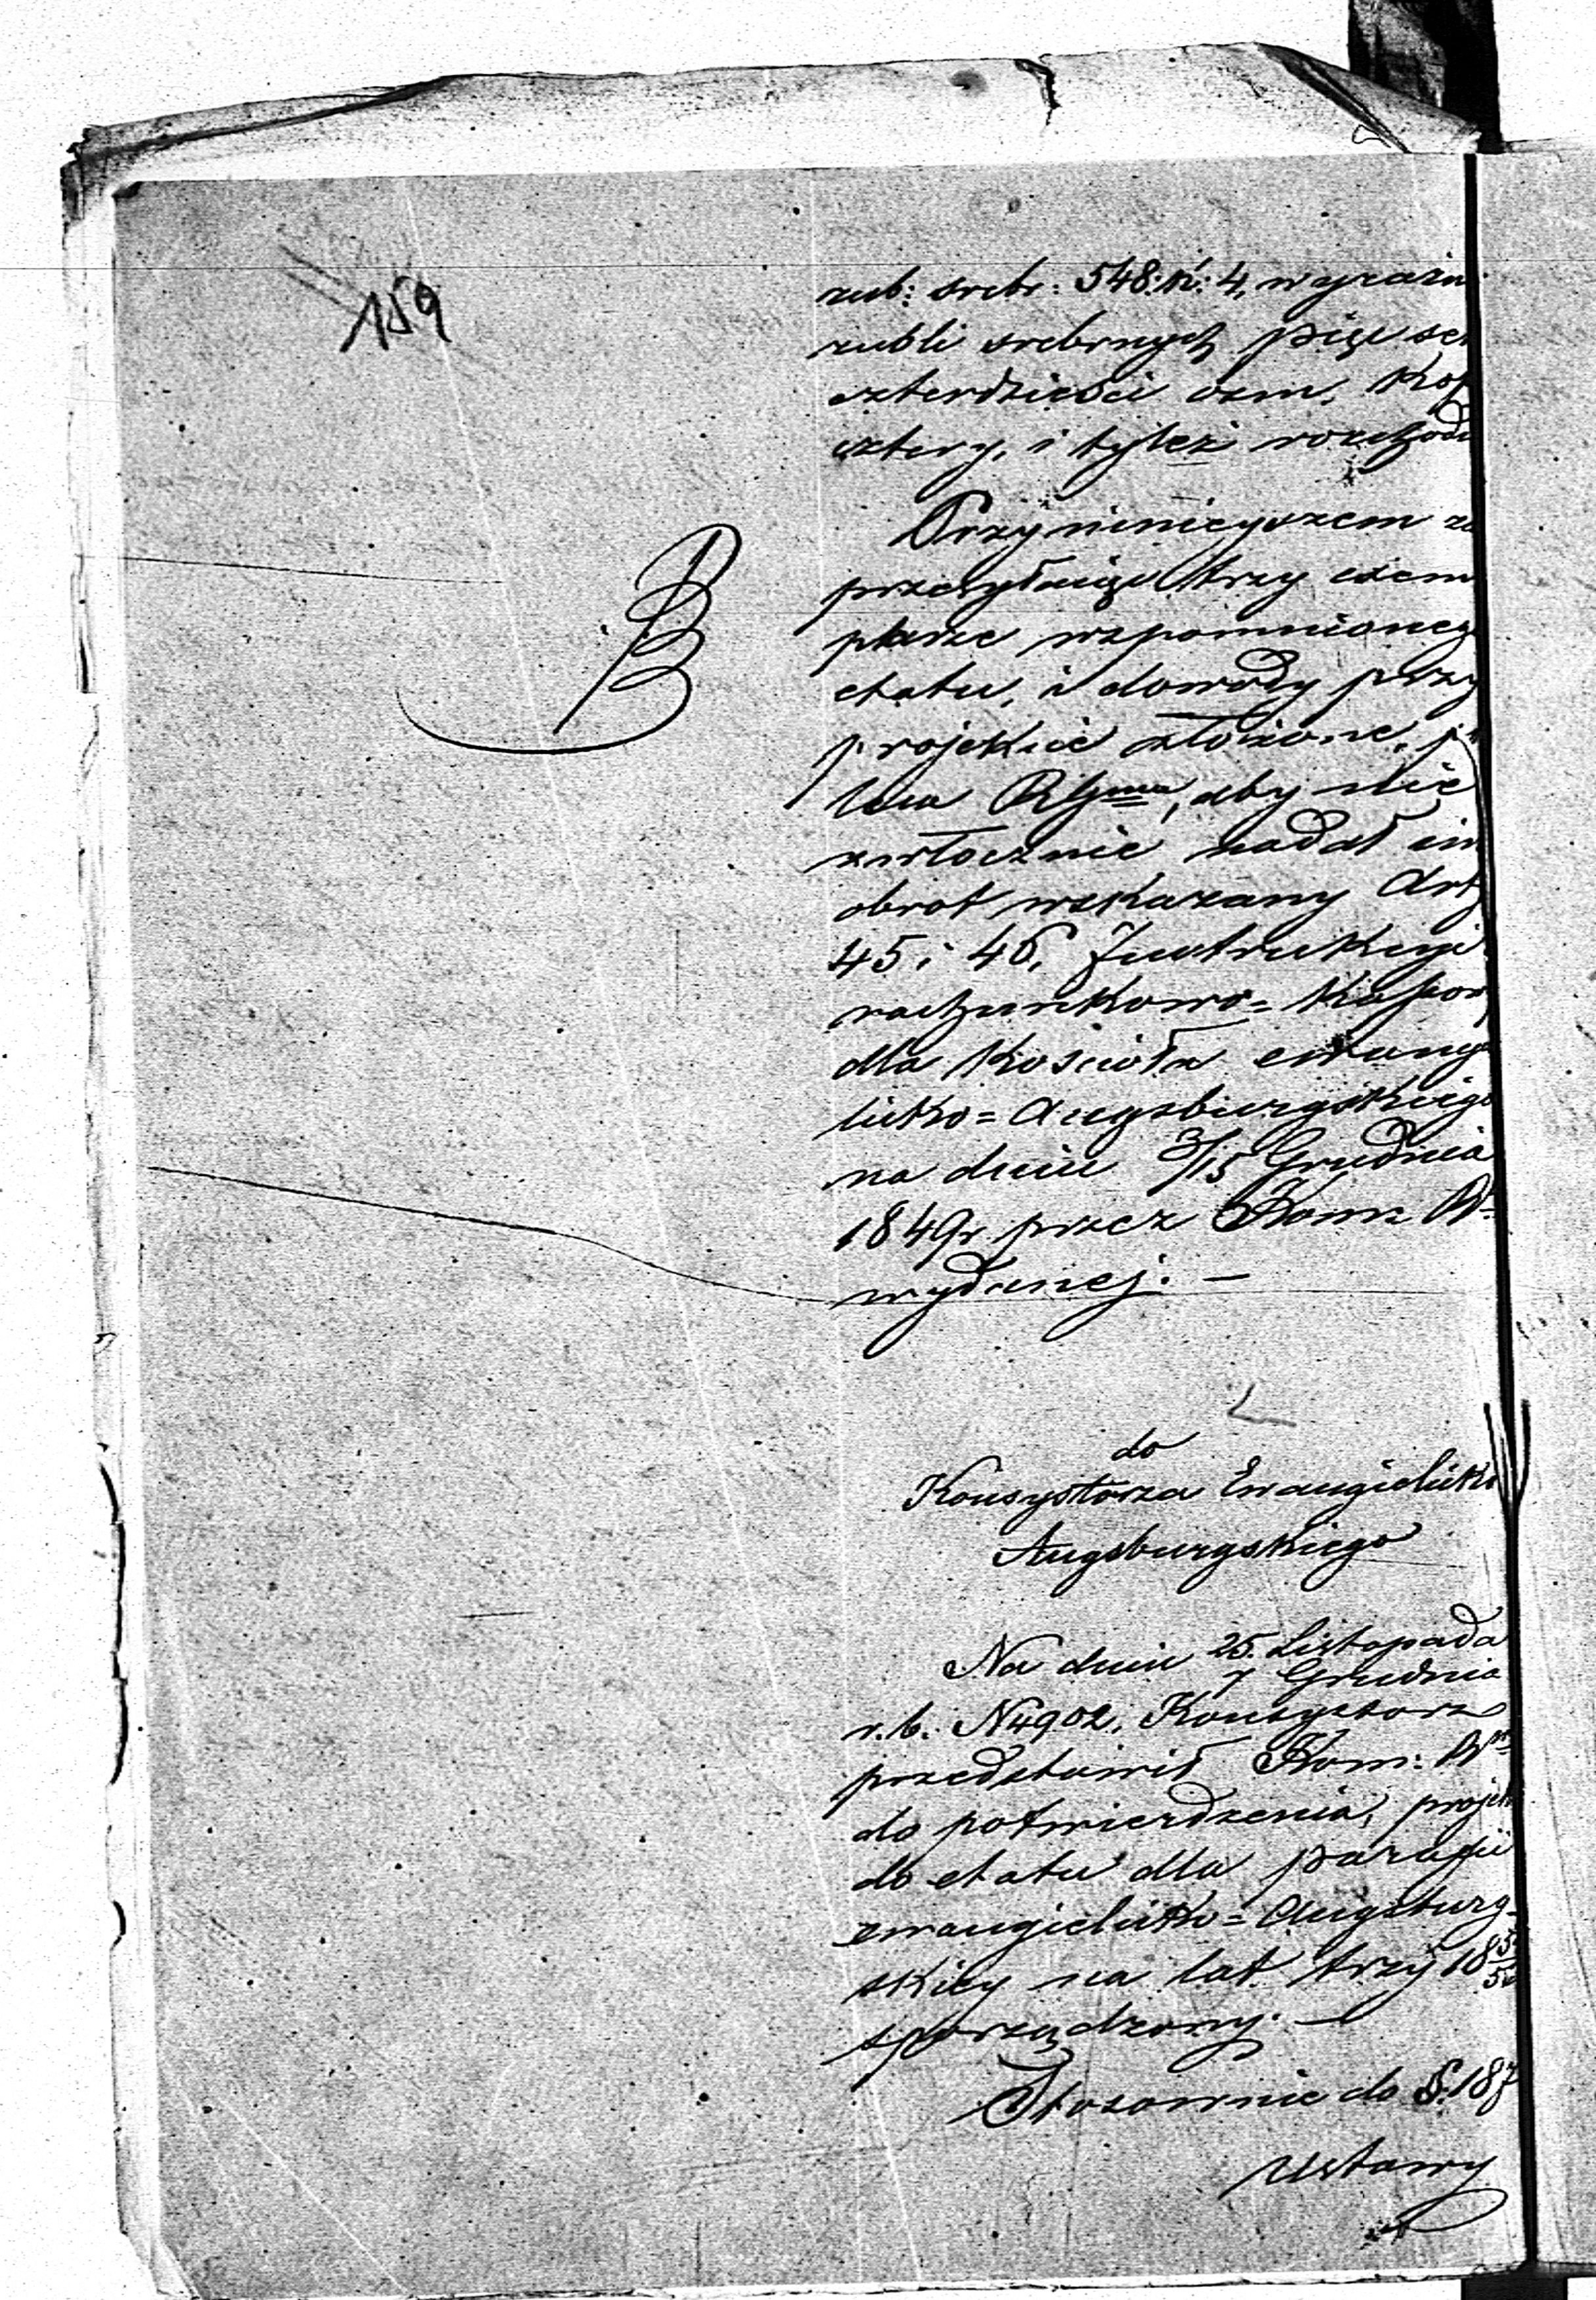 159
rub: srebr: 548. k: 4, wyraźni
rubli srebrnych pięć set
czterdzieści ośm, Kop
cztery, i tyleż rozchodu
Przy niniejszem za
przesyłając trzy exem
plarze wspomnionego
etatu, i dowody przy
projekcie złożone,
aby nie
zwłocznie nadał im
obrot wskazany Art
45 i 46, Instrukcyi
rachunkowo = Kassow
dla Kościoła ewange
licko = Augsburgskiego
na dniu 3/15 Grudnia
1849 r. przez Kom: R
wydanej. —
do
Konsystorza Ewangielicko
Augsburgskiego
Na dniu 25. Listopada
7 Grudnia
r. b. N 4902, Konsystorz
przedstawił Kom: R
do potwierdzenia, projek
do etatu dla parafii
ewangielicko = Augsburg-
skiey na lat trzy 18
sporządzony. —
Stosownie do §. 187
Ustawy